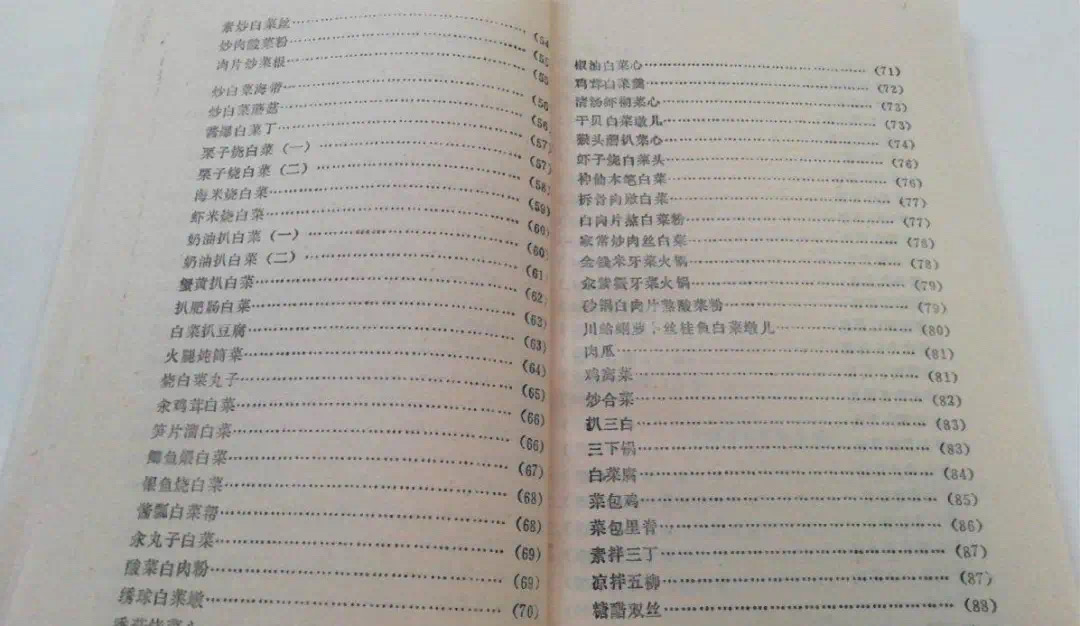 素炒白菜丝……(54)
炒肉酸菜粉……(55)
肉片炒菜根……(55)
炒白菜海带……(56)
炒白菜蘑菇……(56)
酱爆白菜丁……(57)
栗子烧白菜（一）……(57)
栗子烧白菜（二）……(58)
海米烧白菜……(59)
虾米烧白菜……(60)
奶油扒白菜（一）……(60)
奶油扒白菜（二）……(61)
蟹黄扒白菜……(62)
扒肥肠白菜……(62)
白菜扒豆腐……(63)
火腿炖筒菜……(64)
烧白菜丸子……(65)
汆鸡茸白菜……(66)
笋片溜白菜……(66)
鲫鱼煨白菜……(67)
银鱼烧白菜……(68)
酱瓤白菜帮……(68)
汆丸子白菜……(69)
酸菜白肉粉……(69)
绣球白菜墩……(70)
椒油白菜心……(71)
鸡茸白菜羹……(72)
清汤虾搠菜心……(73)
干贝白菜墩儿……(73)
猴头蘑扒菜心……(74)
虾子烧白菜头……(76)
神仙本笔白菜……(76)
拆骨肉墩白菜……(77)
白肉片熬白菜粉……(77)
家常炒肉丝白菜……(78)
金钱米牙菜火锅……(78)
汆紫蟹牙菜火锅……(79)
砂锅白肉片熬酸菜粉……(79)
川蛤蜊萝卜丝桂鱼白菜墩儿……(80)
肉瓜……(81)
鸡窝菜……(81)
炒合菜……(82)
扒三白……(83)
三下锅……(83)
白菜腐……(84)
菜包鸡……(85)
菜包里脊……(86)
素拌三丁……(87)
凉拌五柳……(87)
糖醋双丝……(88)